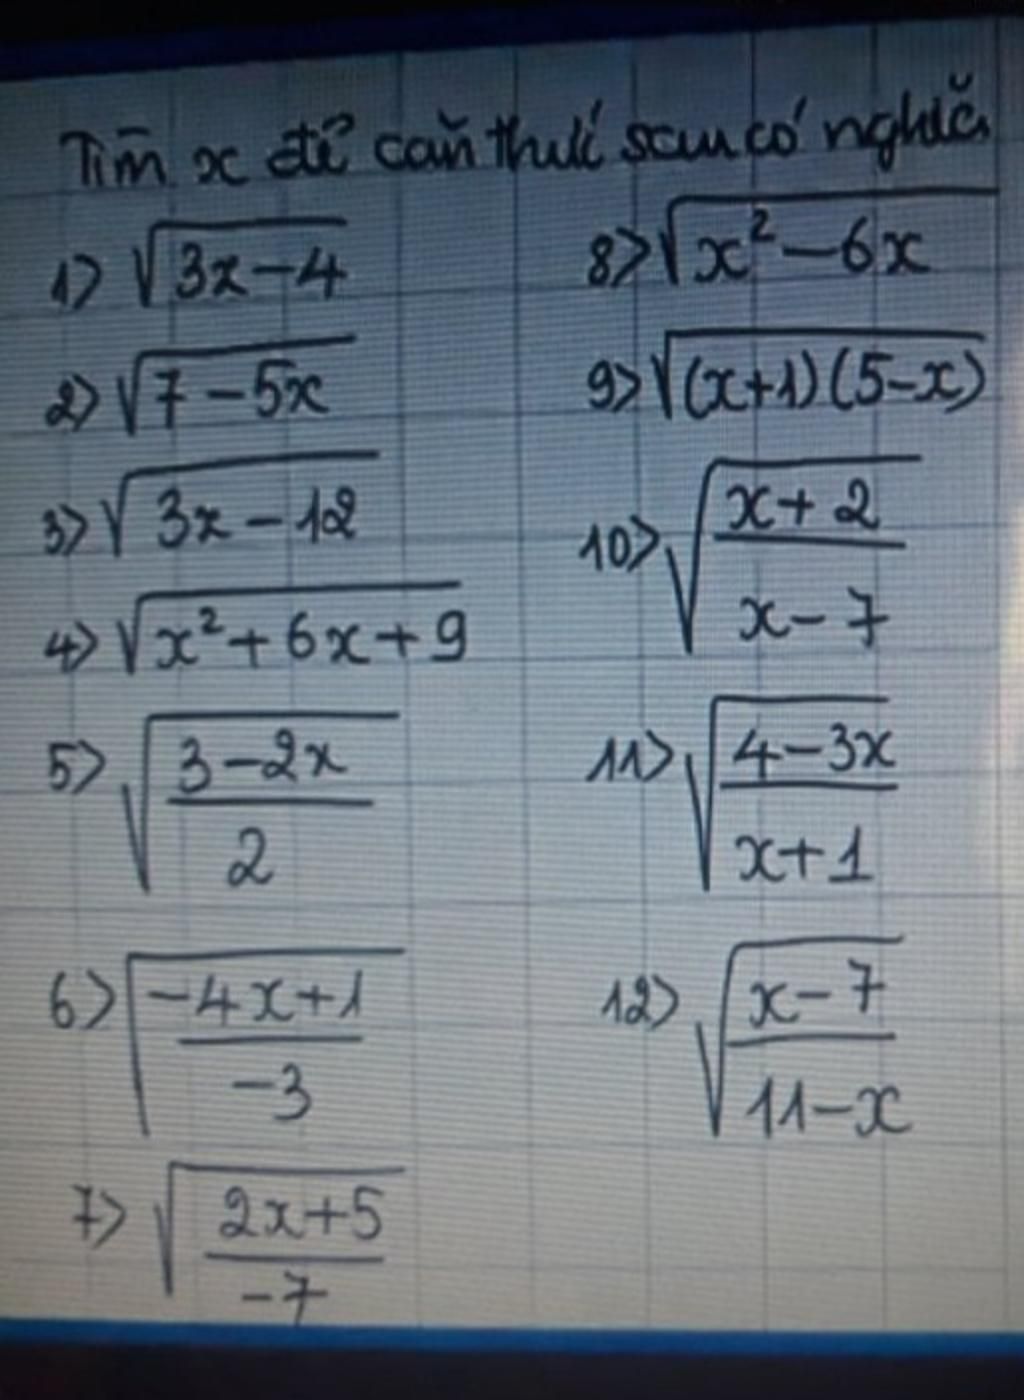 Tìm x để căn thức sau có nghĩa
1) √(3x-4)
2) √(7-5x)
3) √(3x-12)
4) √(x²+6x+9)
5) √((3-2x)/2)
6) √((-4x+1)/-3)
7) √((2x+5)/-7)
8) √(x²-6x)
9) √((x+1)(5-x))
10) √((x+2)/(x-7))
11) √((4-3x)/(x+1))
12) √((x-7)/(11-x))